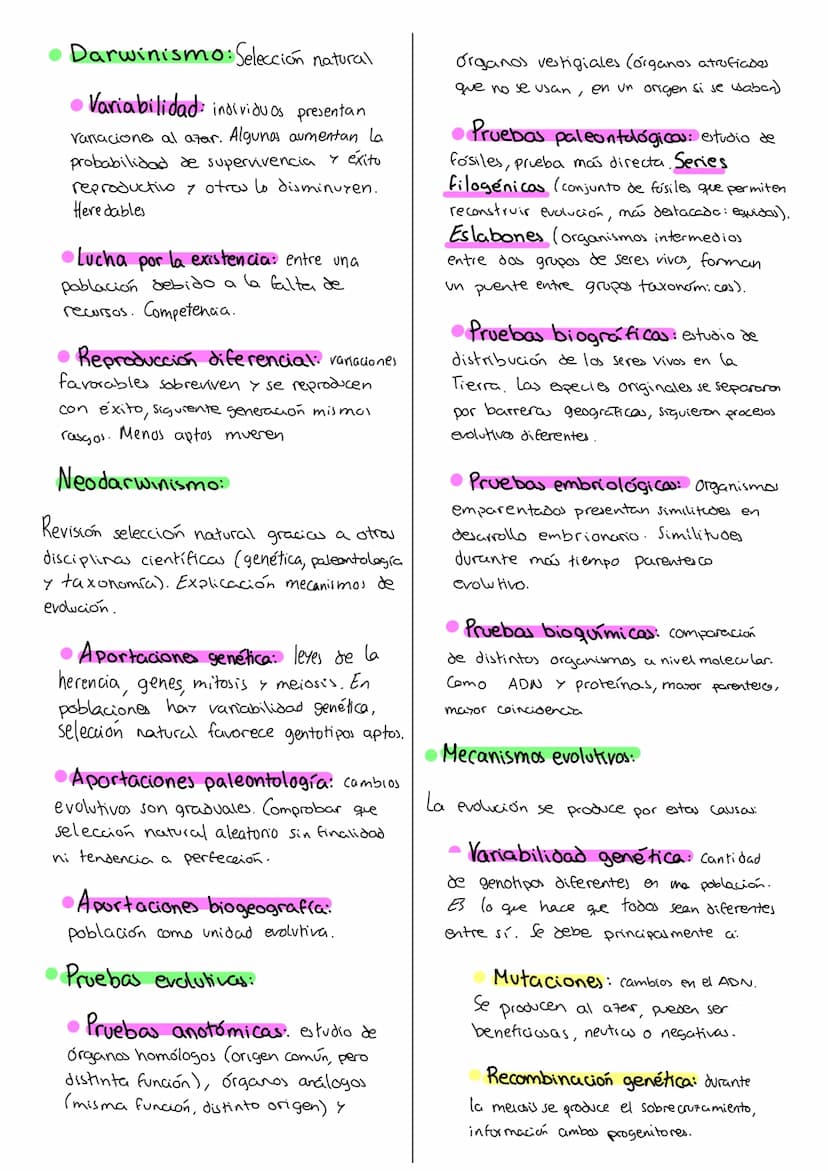 Darwinismo: Selección natural
Variabilidad: individuos presentan
variaciones al azar. Algunas aumentan la
probabilidad de supervivencia y éxito
reproductivo y otras lo disminuyen.
Heredables
Lucha por la existencia: entre una
población debido a la falta de
recursos. Competencia.
Reproducción diferencial: variaciones
favorables sobreviven y se reproducen
con éxito, siguiente generación mismos
rasgos. Menos aptos mueren
Neodarwinismo:
Revisión selección natural gracias a otras
disciplinas científicas (genética, paleontología
y taxonomía). Explicación mecanismos de
evolución.
Aportaciones genética: leyes de la
herencia, genes, mitosis y meiosis. En
poblaciones hay variabilidad genética,
selección natural favorece gentotipos aptos.
Aportaciones paleontología: cambios
evolutivos son graduales. Comprobar que
selección natural aleatorio sin finalidad
ni tendencia a perfección.
Aportaciones biogeografía:
población como unidad evolutiva.
Pruebas evolutivas:
Pruebas anatómicas: estudio de
órganos homólogos (origen común, pero
distinta función), órganos análogos
(misma función, distinto origen) y
órganos vestigiales (órganos atrofiados
que no se usan, en un origen si se usaban)
Pruebas paleontológicas: estudio de
fósiles, prueba más directa. Series
filogénicas (conjunto de fósiles que permiten
reconstruir evolución, más destacado: equidos).
Eslabones (organismos intermedios
entre dos grupos de seres vivos, forman
un puente entre grupos taxonómicos).
Pruebas biográficas: estudio de
distribución de los seres vivos en la
Tierra. Las especies originales se separaron
por barreras geográficas, siguieron procesos
evolutivos diferentes.
Pruebas embriológicas: Organismos
emparentados presentan similitudes en
desarrollo embrionario. Similitudes
durante más tiempo parentesco
evolutivo.
Pruebas bioquímicas: comparación
de distintos organismos a nivel molecular.
Como ADN y proteínas, mayor parentesco,
mayor coincidencia
Mecanismos evolutivos:
La evolución se produce por estas causas:
Variabilidad genética: Cantidad
de genotipos diferentes en una población.
Es lo que hace que todos sean diferentes
entre sí. Se debe principalmente a:
Mutaciones: cambios en el ADN.
Se producen al azar, pueden ser
beneficiosas, neutras o negativas.
Recombinación genética: durante
la meiosis se produce el sobrecruzamiento,
información ambos progenitores.